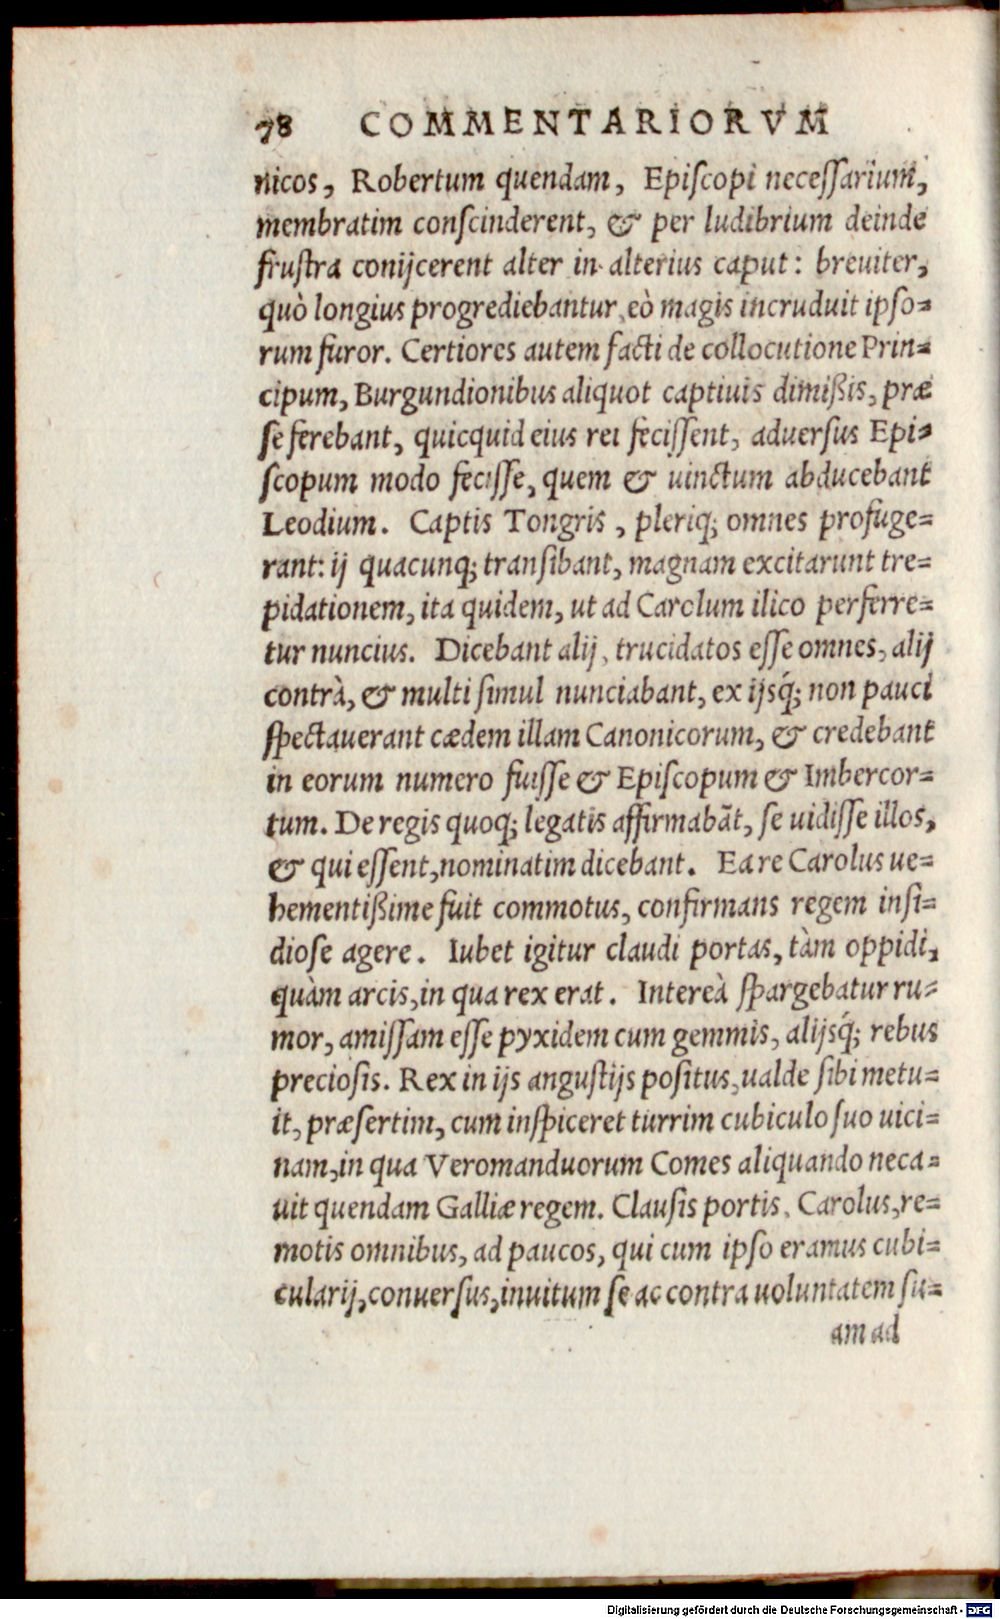 78 COMMENTARIORVM
nicos, Robertum quendam, Epiſcopi neceſſarium,
membratim conſcinderent, & per ludibrium deinde
fruſtra conijcerent alter in alterius caput: breuiter,
quò longius progrediebantur, eò magis incruduit ipſo=
rum furor. Certiores autem facti de collocutione Prin=
cipum, Burgundionibus aliquot captiuis dimißis, præ
ſe ferebant, quicquid eius rei feciſſent, aduerſus Epi=
ſcopum modo feciſſe, quem & uinctum abducebant
Leodium. Captis Tongris, pleriq; omnes profuge=
rant: ij quacunq; tranſibant, magnam excitarunt tre=
pidationem, ita quidem, ut ad Carolum ilico perferre=
tur nuncius. Dicebant alij, trucidatos eſſe omnes, alij
contrà, & multi ſimul nunciabant, ex ijsq́; non pauci
ſpectauerant cædem illam Canonicorum, & credebant
in eorum numero fuiſſe & Epiſcopum & Imbercor=
tum. De regis quoq; legatis affirmabãt, ſe uidiſſe illos,
& qui eſſent, nominatim dicebant. Ea re Carolus ue=
hementißime fuit commotus, confirmans regem inſi=
dioſe agere. Iubet igitur claudi portas, tàm oppidi,
quàm arcis, in qua rex erat. Intereà ſpargebatur ru=
mor, amiſſam eſſe pyxidem cum gemmis, alijsq́; rebus
precioſis. Rex in ijs anguſtijs poſitus, ualde ſibi metu=
it, præſertim, cum inſpiceret turrim cubiculo ſuo uici=
nam, in qua Veromanduorum Comes aliquando neca=
uit quendam Galliæ regem. Clauſis portis, Carolus, re=
motis omnibus, ad paucos, qui cum ipſo eramus cubi=
cularij, conuerſus, inuitum ſe ac contra uoluntatem ſu=
am ad
Digitalisierung gefördert durch die Deutsche Forschungsgemeinschaft - DFG